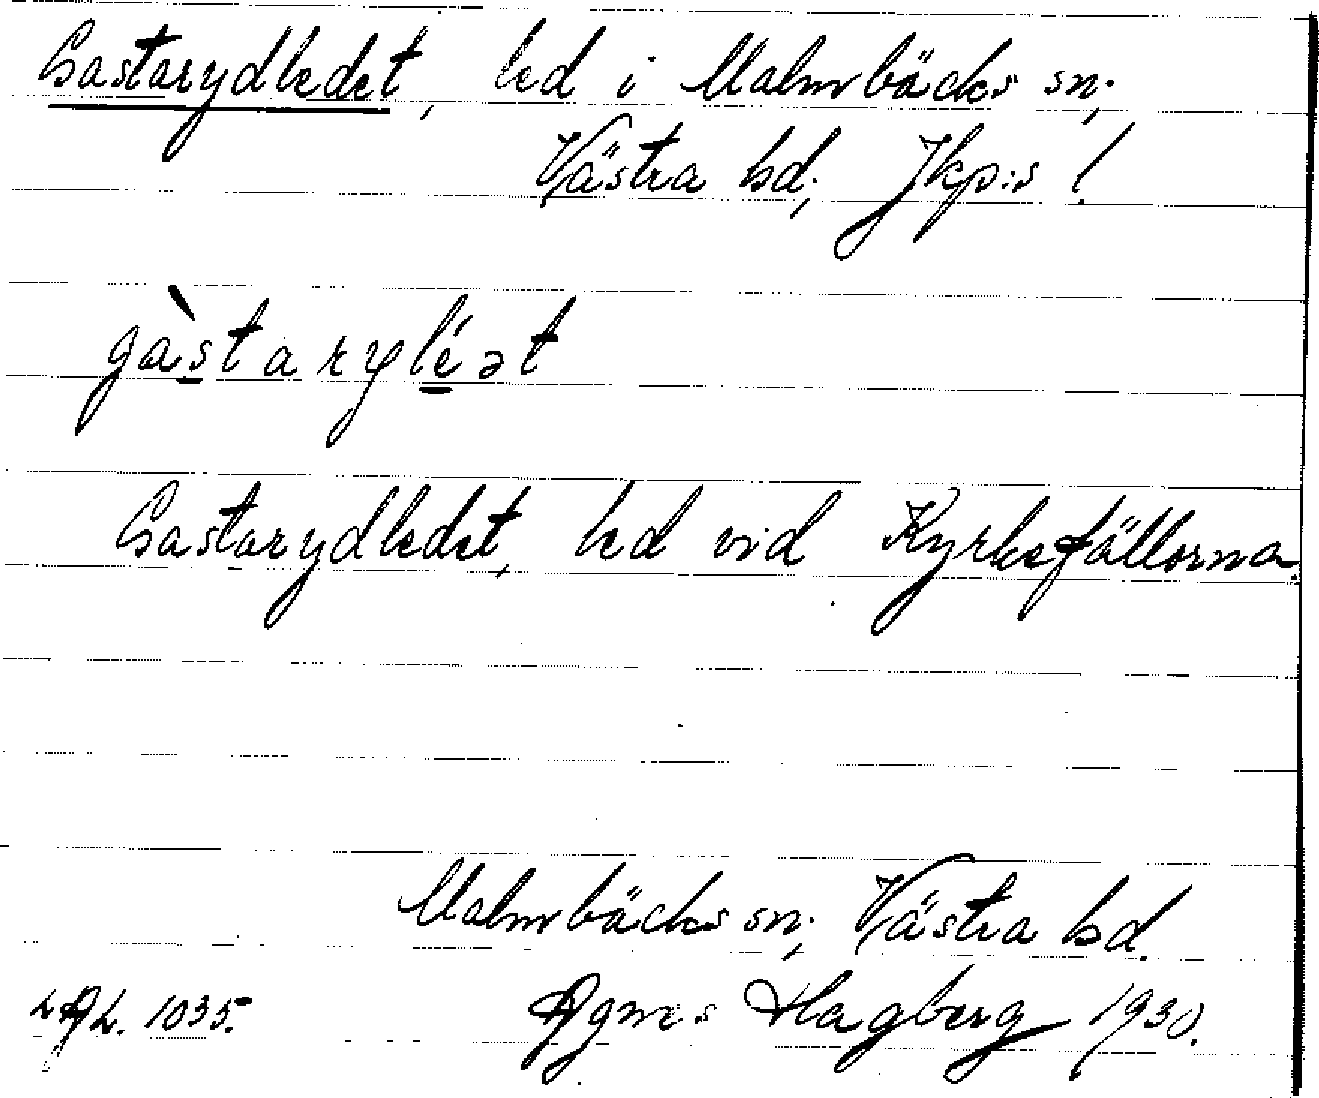 Gastarydledet, led i Malmbäcks sn;
Västra hd; Jkp:s l.
gàstaryléət
Gastarydledet, led vid Kyrkefällorna.
Malmbäcks sn; Västra hd.
Agnes Hagberg 1930.
1035.